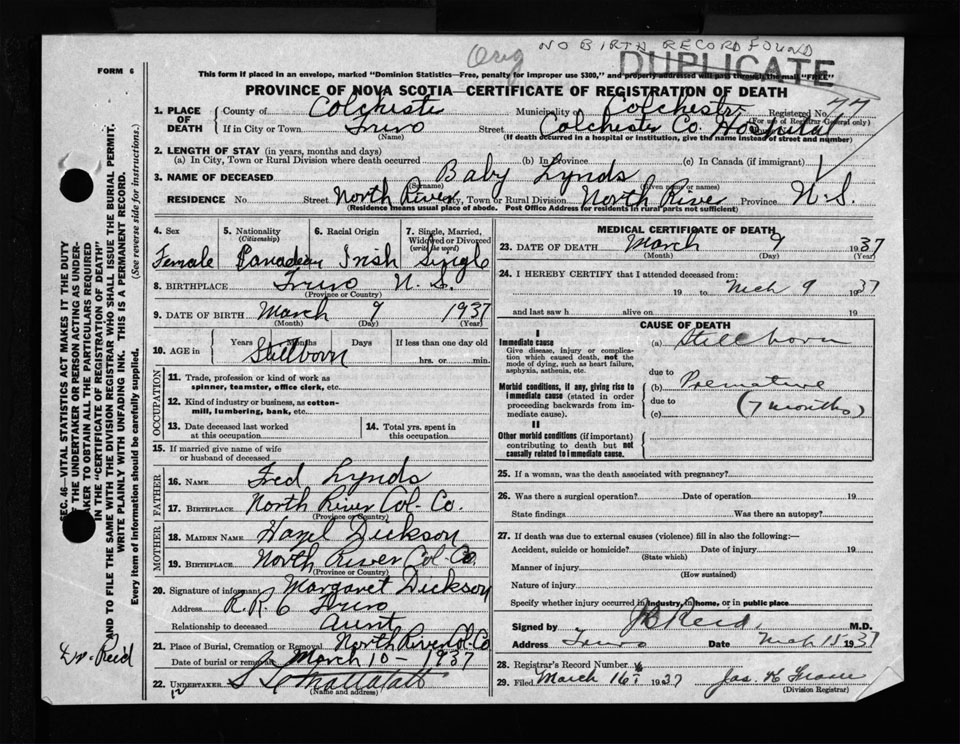 Orig NO BIRTH RECORD FOUND
DUPLICATE
FORM 6
This form if placed in an envelope, marked "Dominion Statistics—Free, penalty for improper use $300," and properly addressed will pass through the mail "FREE"
PROVINCE OF NOVA SCOTIA—CERTIFICATE OF REGISTRATION OF DEATH
1. PLACE OF DEATH County of Colchester Municipality of Colchester Registered No. 77
(For use of Registrar General only)
If in City or Town Truro Street Colchester Co. Hospital
(Name) (If death occurred in a hospital or institution, give the name instead of street and number)
2. LENGTH OF STAY (in years, months and days)
(a) In City, Town or Rural Division where death occurred (b) In Province (c) In Canada (if immigrant)
3. NAME OF DECEASED Baby Lynds
(Surname) (Given name or names)
RESIDENCE No. Street North River City, Town or Rural Division North River Province N.S.
(Residence means usual place of abode. Post Office Address for residents in rural parts not sufficient)
4. Sex 5. Nationality (Citizenship) 6. Racial Origin 7. Single, Married, Widowed or Divorced (write the word)
Female Canadian Irish Single
8. BIRTHPLACE Truro N.S.
(Province or Country)
9. DATE OF BIRTH March 9 1937
(Month) (Day) (Year)
10. AGE in Years Months Days If less than one day old
Stillborn hrs. or min.
OCCUPATION
11. Trade, profession or kind of work as spinner, teamster, office clerk, etc.
12. Kind of industry or business, as cotton-mill, lumbering, bank, etc.
13. Date deceased last worked at this occupation
14. Total yrs. spent in this occupation
15. If married give name of wife or husband of deceased
FATHER
16. NAME Fred Lynds
17. BIRTHPLACE North River Col-Co.
(Province or Country)
MOTHER
18. MAIDEN NAME Hazel Dickson
19. BIRTHPLACE North River Col Co.
(Province or Country)
20. Signature of informant Margaret Dickson
Address R.R. 6 Truro
Relationship to deceased Aunt
21. Place of Burial, Cremation or Removal North River Col-Co
Date of burial or removal March 10 - 1937
22. UNDERTAKER
(Name and address)
12
MEDICAL CERTIFICATE OF DEATH
23. DATE OF DEATH March 9 1937
(Month) (Day) (Year)
24. I HEREBY CERTIFY that I attended deceased from:
19 to Mch 9 1937
and last saw h alive on 19
CAUSE OF DEATH
I
Immediate cause
Give disease, injury or complication which caused death, not the mode of dying, such as heart failure, asphyxia, asthenia, etc.
(a) Stillborn
due to
Morbid conditions, if any, giving rise to immediate cause (stated in order proceeding backwards from immediate cause).
(b) Premature
due to (7 months)
(c)
II
Other morbid conditions (if important) contributing to death but not causally related to immediate cause.
25. If a woman, was the death associated with pregnancy?
26. Was there a surgical operation? Date of operation 19
State findings Was there an autopsy?
27. If death was due to external causes (violence) fill in also the following:—
Accident, suicide or homicide? Date of injury 19
(State which)
Manner of injury
(How sustained)
Nature of injury
Specify whether injury occurred in industry, in home, or in public place
Signed by Reid M.D.
Address Truro Date Mch 15 1937
28. Registrar's Record Number
29. Filed March 16 1937
(Division Registrar)
SEC. 46—VITAL STATISTICS ACT MAKES IT THE DUTY
OF THE UNDERTAKER OR PERSON ACTING AS UNDERTAKER TO OBTAIN ALL THE PARTICULARS REQUIRED
IN THE "CERTIFICATE OF REGISTRATION OF DEATH"
AND TO FILE THE SAME WITH THE DIVISION REGISTRAR WHO SHALL ISSUE THE BURIAL PERMIT.
WRITE PLAINLY WITH UNFADING INK. THIS IS A PERMANENT RECORD.
Every item of information should be carefully supplied. (See reverse side for instructions.)
Dr. Reid